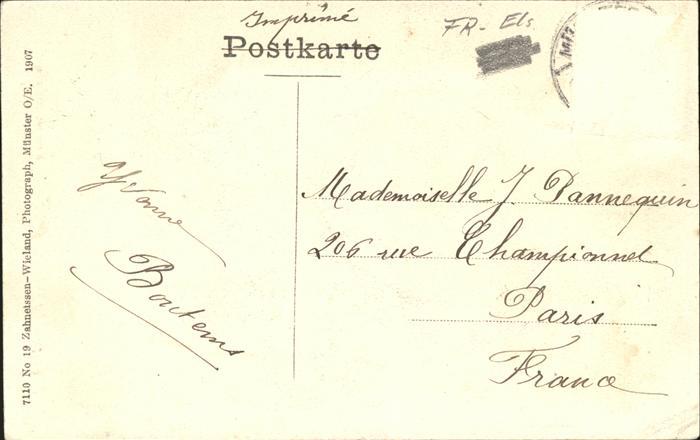 Imprimé
FR- Els
Postkarte
7110 No 19 Zahneissen-Wieland, Photograph, Münster O/E. 1907
Yvonne
Boutems
Mademoiselle J. Pannequin
206 rue Championnet
Paris
France